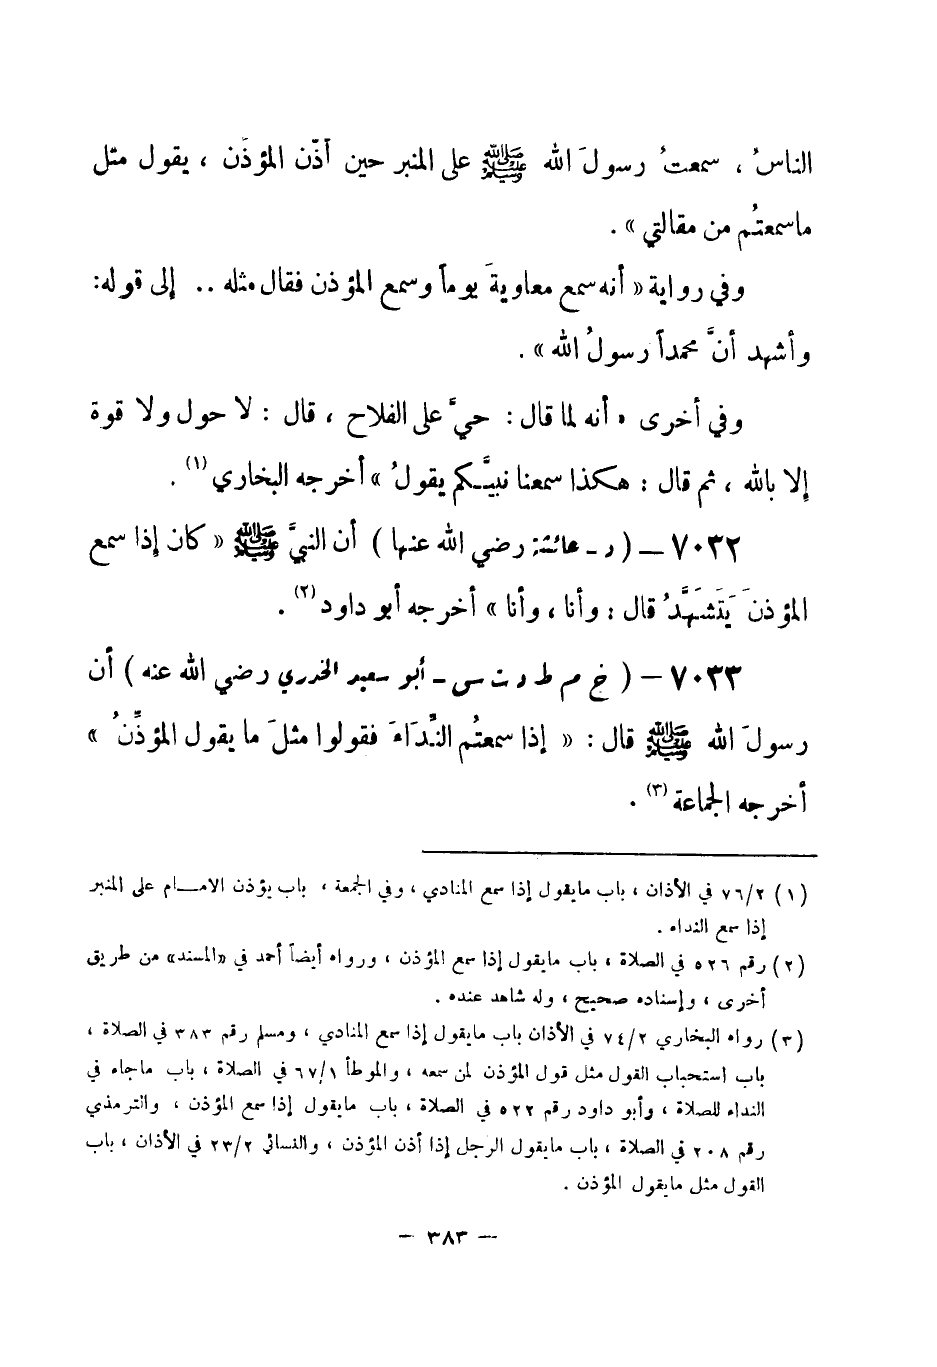 الناسُ ، سمعتُ رسولَ الله ﷺ على المنبر حين أذَّن المؤذن ، يقول مثل
ماسمعتُم من مقالتي » .
وفي رواية « أنه سمع معاويةَ يوماً وسمع المؤذن فقال مثله .. إلى قوله:
وأشهد أنَّ محمداً رسولُ الله » .
وفي أخرى « أنه لما قال : حيَّ على الفلاح ، قال : لا حول ولا قوة
إلا بالله ، ثم قال : هكذا سمعنا نبيَّكم يقولُ » أخرجه البخاري (١) .
٧٠٣٢ – ( د - عائشة رضي الله عنها ) أن النبيَّ ﷺ « كان إذا سمع
المؤذنَ يَتَشَهَّدُ قال : وأنا ، وأنا » أخرجه أبو داود (٢) .
٧٠٣٣ – ( خ م ط د ت س - أبو سعيد الخدري رضي الله عنه ) أن
رسولَ الله ﷺ قال : « إذا سمعتُم النِّدَاءَ فقولوا مثلَ ما يقول المؤذِّنُ »
أخرجه الجماعة (٣) .
(١) ٧٦/٢ في الأذان ، باب مايقول إذا سمع المنادي ، وفي الجمعة ، باب يؤذن الامام على المنبر
إذا سمع النداء .
(٢) رقم ٥٢٦ في الصلاة ، باب مايقول إذا سمع المؤذن ، ورواه أيضاً أحمد في «المسند» من طريق
أخرى ، وإسناده صحيح ، وله شاهد عنده .
(٣) رواه البخاري ٧٤/٢ في الأذان باب مايقول إذا سمع المنادي ، ومسلم رقم ٣٨٣ في الصلاة ،
باب استحباب القول مثل قول المؤذن لمن سمعه ، والموطأ ٦٧/١ في الصلاة ، باب ماجاء في
النداء للصلاة ، وأبو داود رقم ٥٢٢ في الصلاة ، باب مايقول إذا سمع المؤذن ، والترمذي
رقم ٢٠٨ في الصلاة ، باب مايقول الرجل إذا أذن المؤذن ، والنسائي ٢٣/٢ في الأذان ، باب
القول مثل مايقول المؤذن .
– ٣٨٣ –